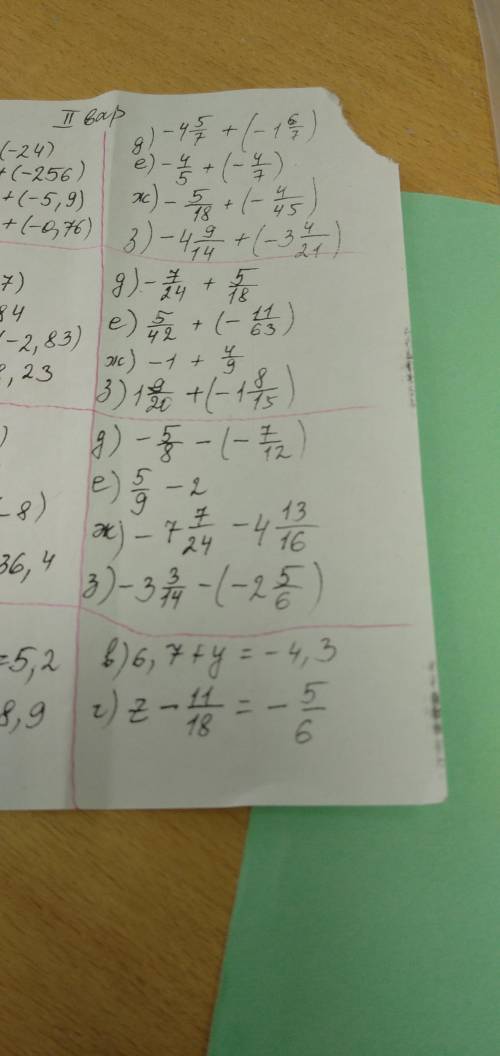 II вар
(-24)
+(-256)
+(-5,9)
+(-0,76)
д) -4 5/7 + (-1 6/7)
е) -4/5 + (-4/7)
ж) -5/18 + (-4/45)
з) -4 9/14 + (-3 4/21)
7)
84
(-2,83)
,23
д) -7/24 + 5/18
е) 5/42 + (-11/63)
ж) -1 + 4/9
з) 1 9/20 + (-1 8/15)
)
-8)
36,4
д) -5/8 - (-7/12)
е) 5/9 - 2
ж) -7 7/24 - 4 13/16
з) -3 3/14 - (-2 5/6)
=5,2
8,9
в) 6,7+y = -4,3
г) z - 11/18 = -5/6